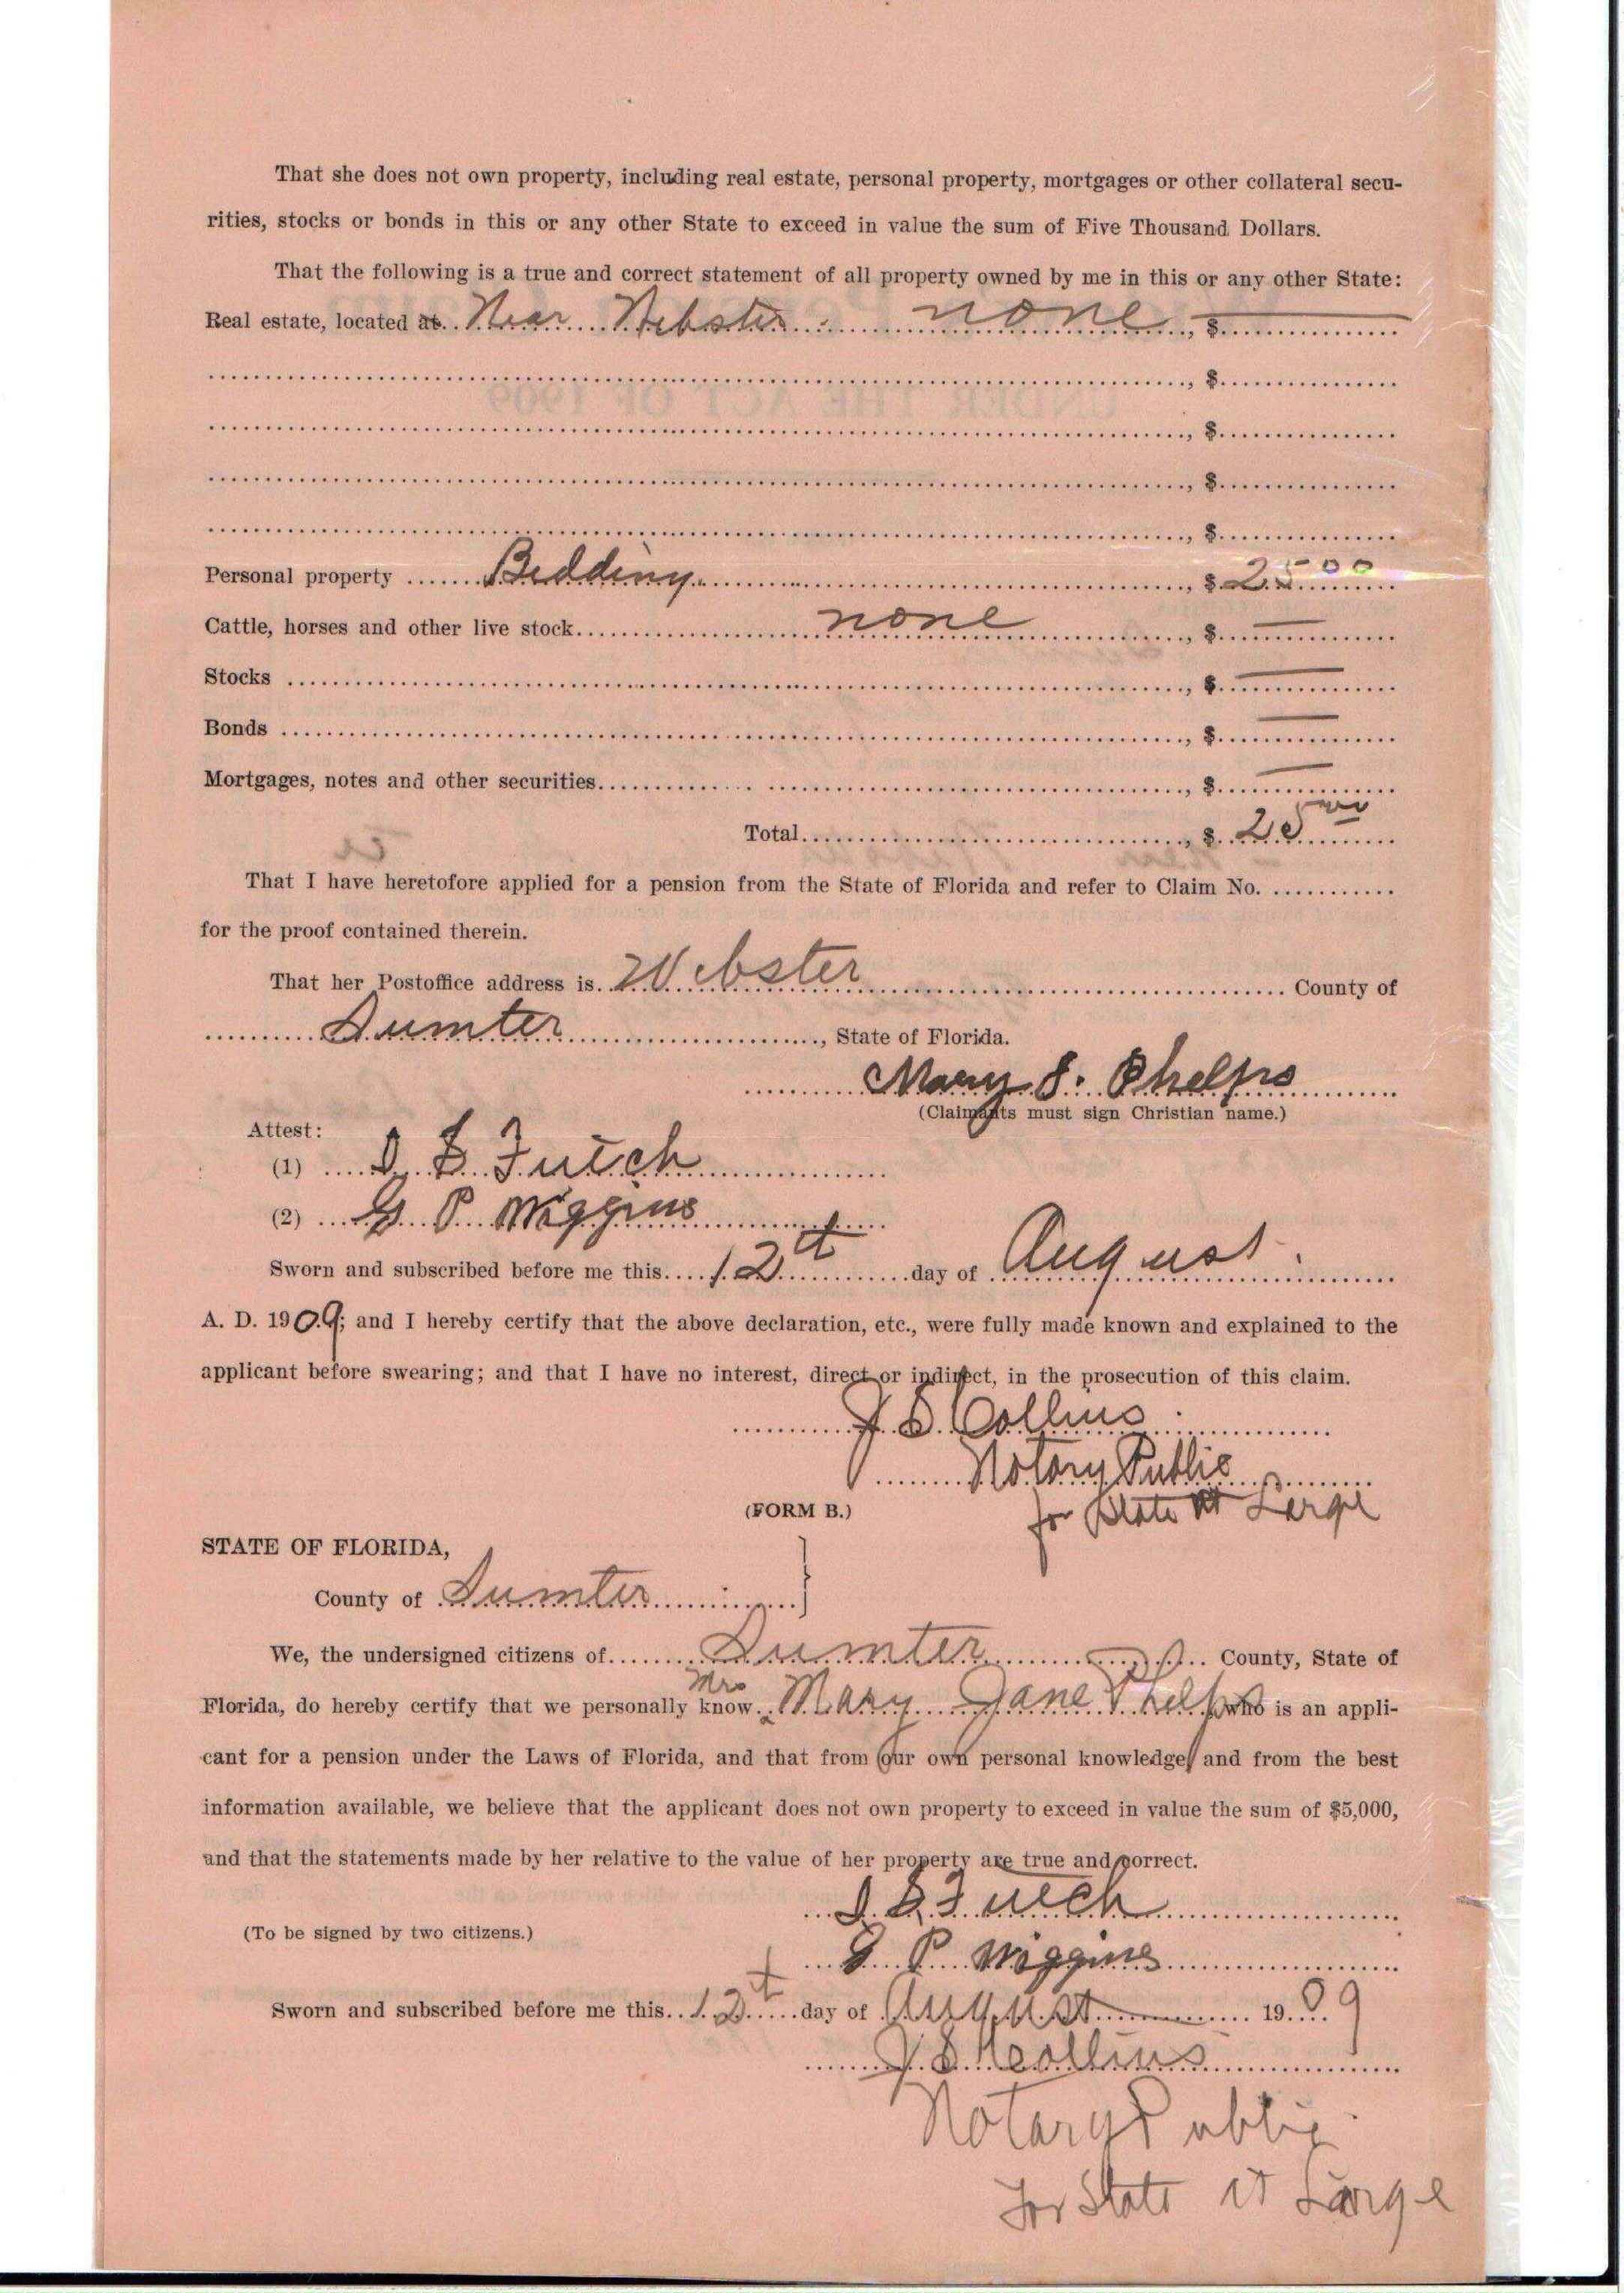 That she does not own property, including real estate, personal property, mortgages or other collateral secu-
rities, stocks or bonds in this or any other State to exceed in value the sum of Five Thousand Dollars.
That the following is a true and correct statement of all property owned by me in this or any other State:
Real estate, located at Near Webster none, $
, $
, $
, $
, $
Personal property Bedding, $ 25 00
Cattle, horses and other live stock none, $
Stocks, $
Bonds, $
Mortgages, notes and other securities, $
Total, $ 25 00
That I have heretofore applied for a pension from the State of Florida and refer to Claim No.
for the proof contained therein.
That her Postoffice address is Webster County of
Sumter, State of Florida.
Mary J. Phelps
(Claimants must sign Christian name.)
Attest:
(1) Futch
(2) G P Wiggins
Sworn and subscribed before me this 12t day of August
A. D. 1909; and I hereby certify that the above declaration, etc., were fully made known and explained to the
applicant before swearing; and that I have no interest, direct or indirect, in the prosecution of this claim.
J S Collins
Notary Public
for State at Large
(FORM B.)
STATE OF FLORIDA,
County of Sumter
We, the undersigned citizens of Sumter County, State of
Florida, do hereby certify that we personally know Mrs Mary Jane Phelps who is an appli-
cant for a pension under the Laws of Florida, and that from our own personal knowledge, and from the best
information available, we believe that the applicant does not own property to exceed in value the sum of $5,000,
and that the statements made by her relative to the value of her property are true and correct.
Futch
(To be signed by two citizens.)
G P Wiggins
Sworn and subscribed before me this 12t day of August 1909
J S Collins
Notary Public
for State at Large